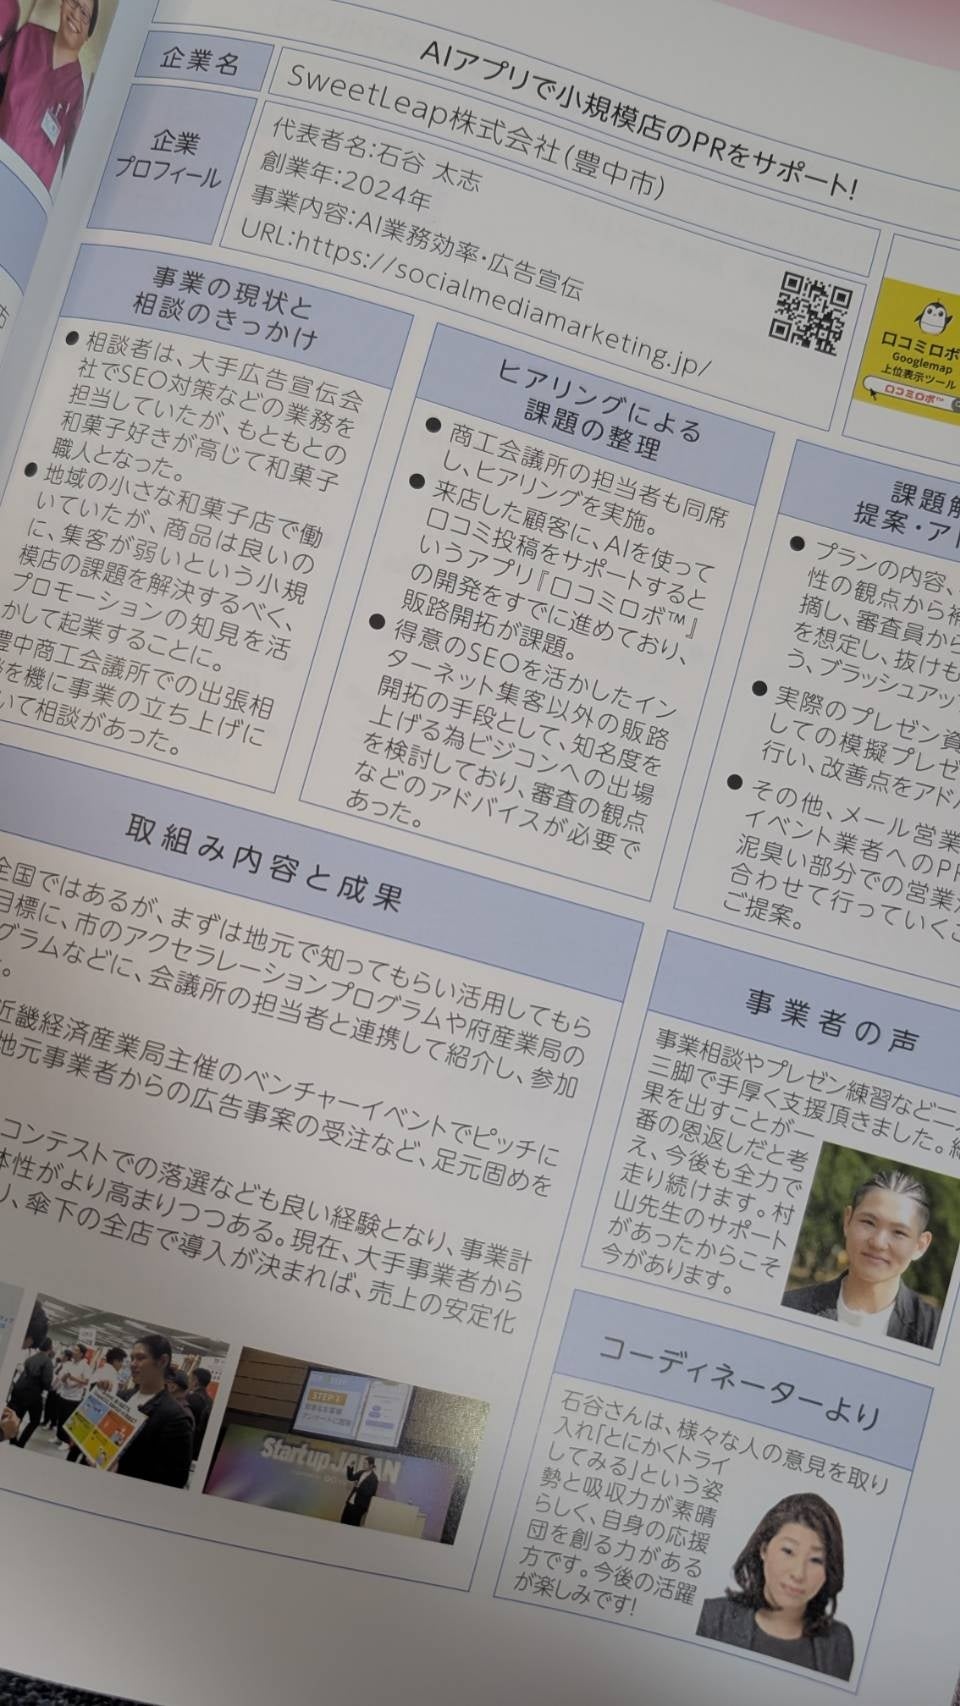 AIアプリで小規模店のPRをサポート!
企業名
SweetLeap株式会社(豊中市)
企業
プロフィール
代表者名:石谷 太志
創業年:2024年
事業内容:AI業務効率・広告宣伝
URL:https://socialmediamarketing.jp/
口コミロボ
Googlemap
上位表示ツール
口コミロボ™
事業の現状と
相談のきっかけ
●相談者は、大手広告宣伝会
社でSEO対策などの業務を
担当していたが、もともとの
和菓子好きが高じて和菓子
職人となった。
●地域の小さな和菓子店で働
いていたが、商品は良いの
に、集客が弱いという小規
模店の課題を解決するべく、
プロモーションの知見を活
かして起業することに。
豊中商工会議所での出張相
を機に事業の立ち上げに
いて相談があった。
ヒアリングによる
課題の整理
●商工会議所の担当者も同席
し、ヒアリングを実施。
●来店した顧客に、AIを使って
口コミ投稿をサポートすると
いうアプリ『口コミロボ™』
の開発をすでに進めており、
販路開拓が課題。
●得意のSEOを活かしたイン
ターネット集客以外の販路
開拓の手段として、知名度を
上げる為ビジコンへの出場
を検討しており、審査の観点
などのアドバイスが必要で
あった。
課題解
提案・アド
●プランの内容、
性の観点から補
摘し、審査員から
を想定し、抜けも
う、ブラッシュアッ
●実際のプレゼン資
しての模擬プレゼ
行い、改善点をアド
●その他、メール営業
イベント業者へのPR
泥臭い部分での営業
合わせて行っていくこ
ご提案。
取組み内容と成果
全国ではあるが、まずは地元で知ってもらい活用してもら
目標に、市のアクセラレーションプログラムや府産業局の
グラムなどに、会議所の担当者と連携して紹介し、参加
。
近畿経済産業局主催のベンチャーイベントでピッチに
地元事業者からの広告事案の受注など、足元固めを
コンテストでの落選なども良い経験となり、事業計
体性がより高まりつつある。現在、大手事業者から
り、傘下の全店で導入が決まれば、売上の安定化
STEP
Startup JAPAN
事業者の声
事業相談やプレゼン練習など二人
三脚で手厚く支援頂きました。結
果を出すことが一
番の恩返しだと考
え、今後も全力で
走り続けます。村
山先生のサポート
があったからこそ
今があります。
コーディネーターより
石谷さんは、様々な人の意見を取り
入れ「とにかくトライ
してみる」という姿
勢と吸収力が素晴
らしく、自身の応援
団を創る力がある
方です。今後の活躍
が楽しみです!